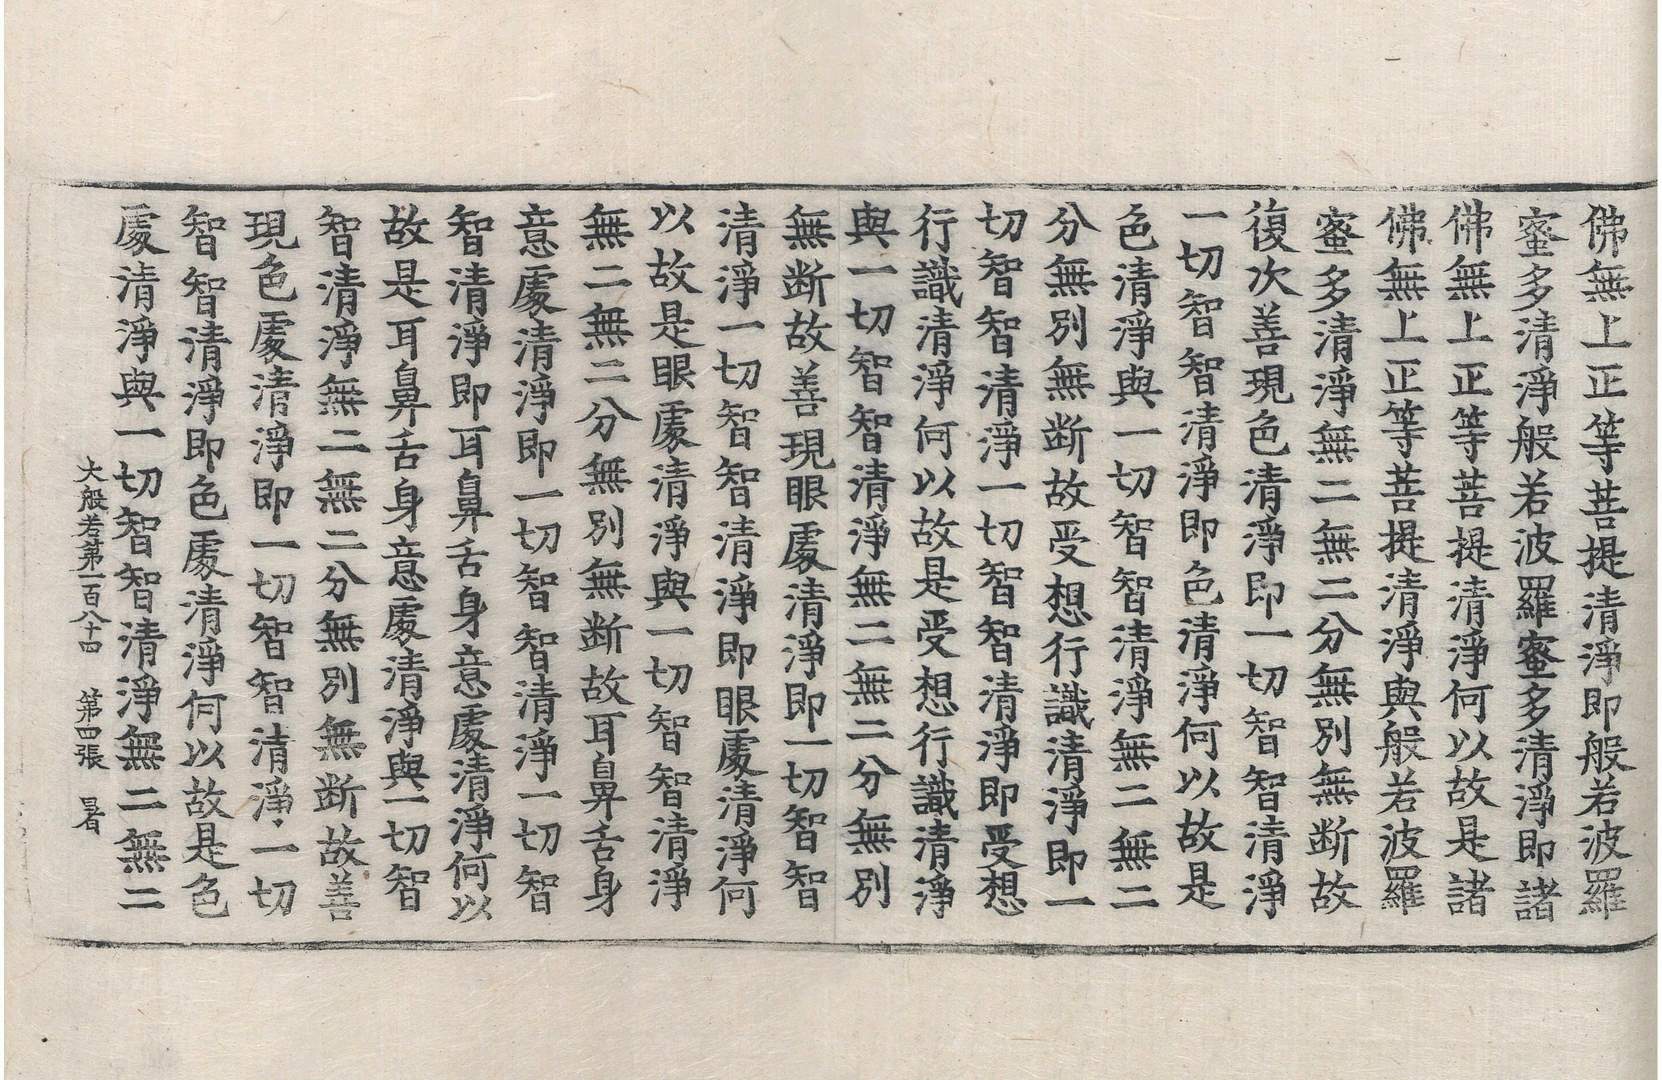 佛無上正等菩提清淨即般若波羅
蜜多清淨般若波羅蜜多清淨即諸
佛無上正等菩提清淨何以故是諸
佛無上正等菩提清淨與般若波羅
蜜多清淨無二無二分無別無断故
復次善現色清淨即一切智智清淨
一切智智清淨即色清淨何以故是
色清淨與一切智智清淨無二無二
分無別無断故受想行識清淨即一
切智智清淨一切智智清淨即受想
行識清淨何以故是受想行識清淨
與一切智智清淨無二無二分無別
無断故善現眼處清淨即一切智智
清淨一切智智清淨即眼處清淨何
以故是眼處清淨與一切智智清淨
無二無二分無別無断故耳鼻舌身
意處清淨即一切智智清淨一切智
智清淨即耳鼻舌身意處清淨何以
故是耳鼻舌身意處清淨與一切智
智清淨無二無二分無別無断故善
現色處清淨即一切智智清淨一切
智智清淨即色處清淨何以故是色
處清淨與一切智智清淨無二無二
大般若第一百八十四 第四張 暑